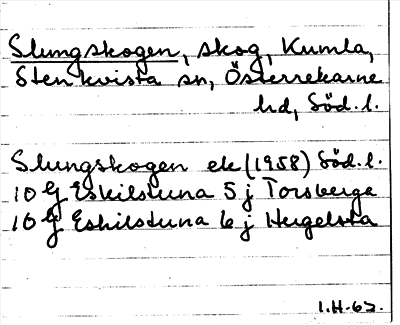 Slungskogen, skog, Kumla,
Stenkvista sn, Österrekarne
hd, Söd. l.
Slungskogen ek (1958) Söd. l.
10 G Eskilstuna 5 j Torsberga
10 G Eskilstuna 6 j Hugelsta
I.H-62.